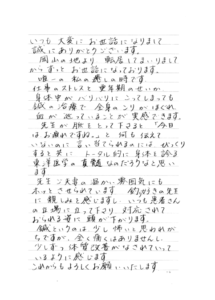 いつも大変にお世話になりまして
誠にありがとうございます。
岡山の地より転居してまいりまして
からずっとお世話になっております。
唯一の私の癒しの時です
仕事のストレスと更年期のせいか
身体中がバリバリにこってしまっても
誠の治療で全身のこりがほぐれ
血が巡っていることが実感できます。
先生が脈をとって下さると「今日
はお疲れですね。」と何も伝えて
いないのに言い当てられるのには、ビックリ
すると共にトータル的に身体を診る
東洋医学の真髄なのだろうなと思い
ます
先生ご夫妻の温かい雰囲気にも
ホッとさせられています 釣り好きの先生
に親しみを感じますし いつも患者さん
の立場に立って下さり対応されて
おられる姿に頭が下がります。
鍼というのは、少し怖いと思われが
ちですが全く痛くはありませんし、
少しずつ体質改善がなされていって
いるように感じます
これからもよろしくお願いいたします